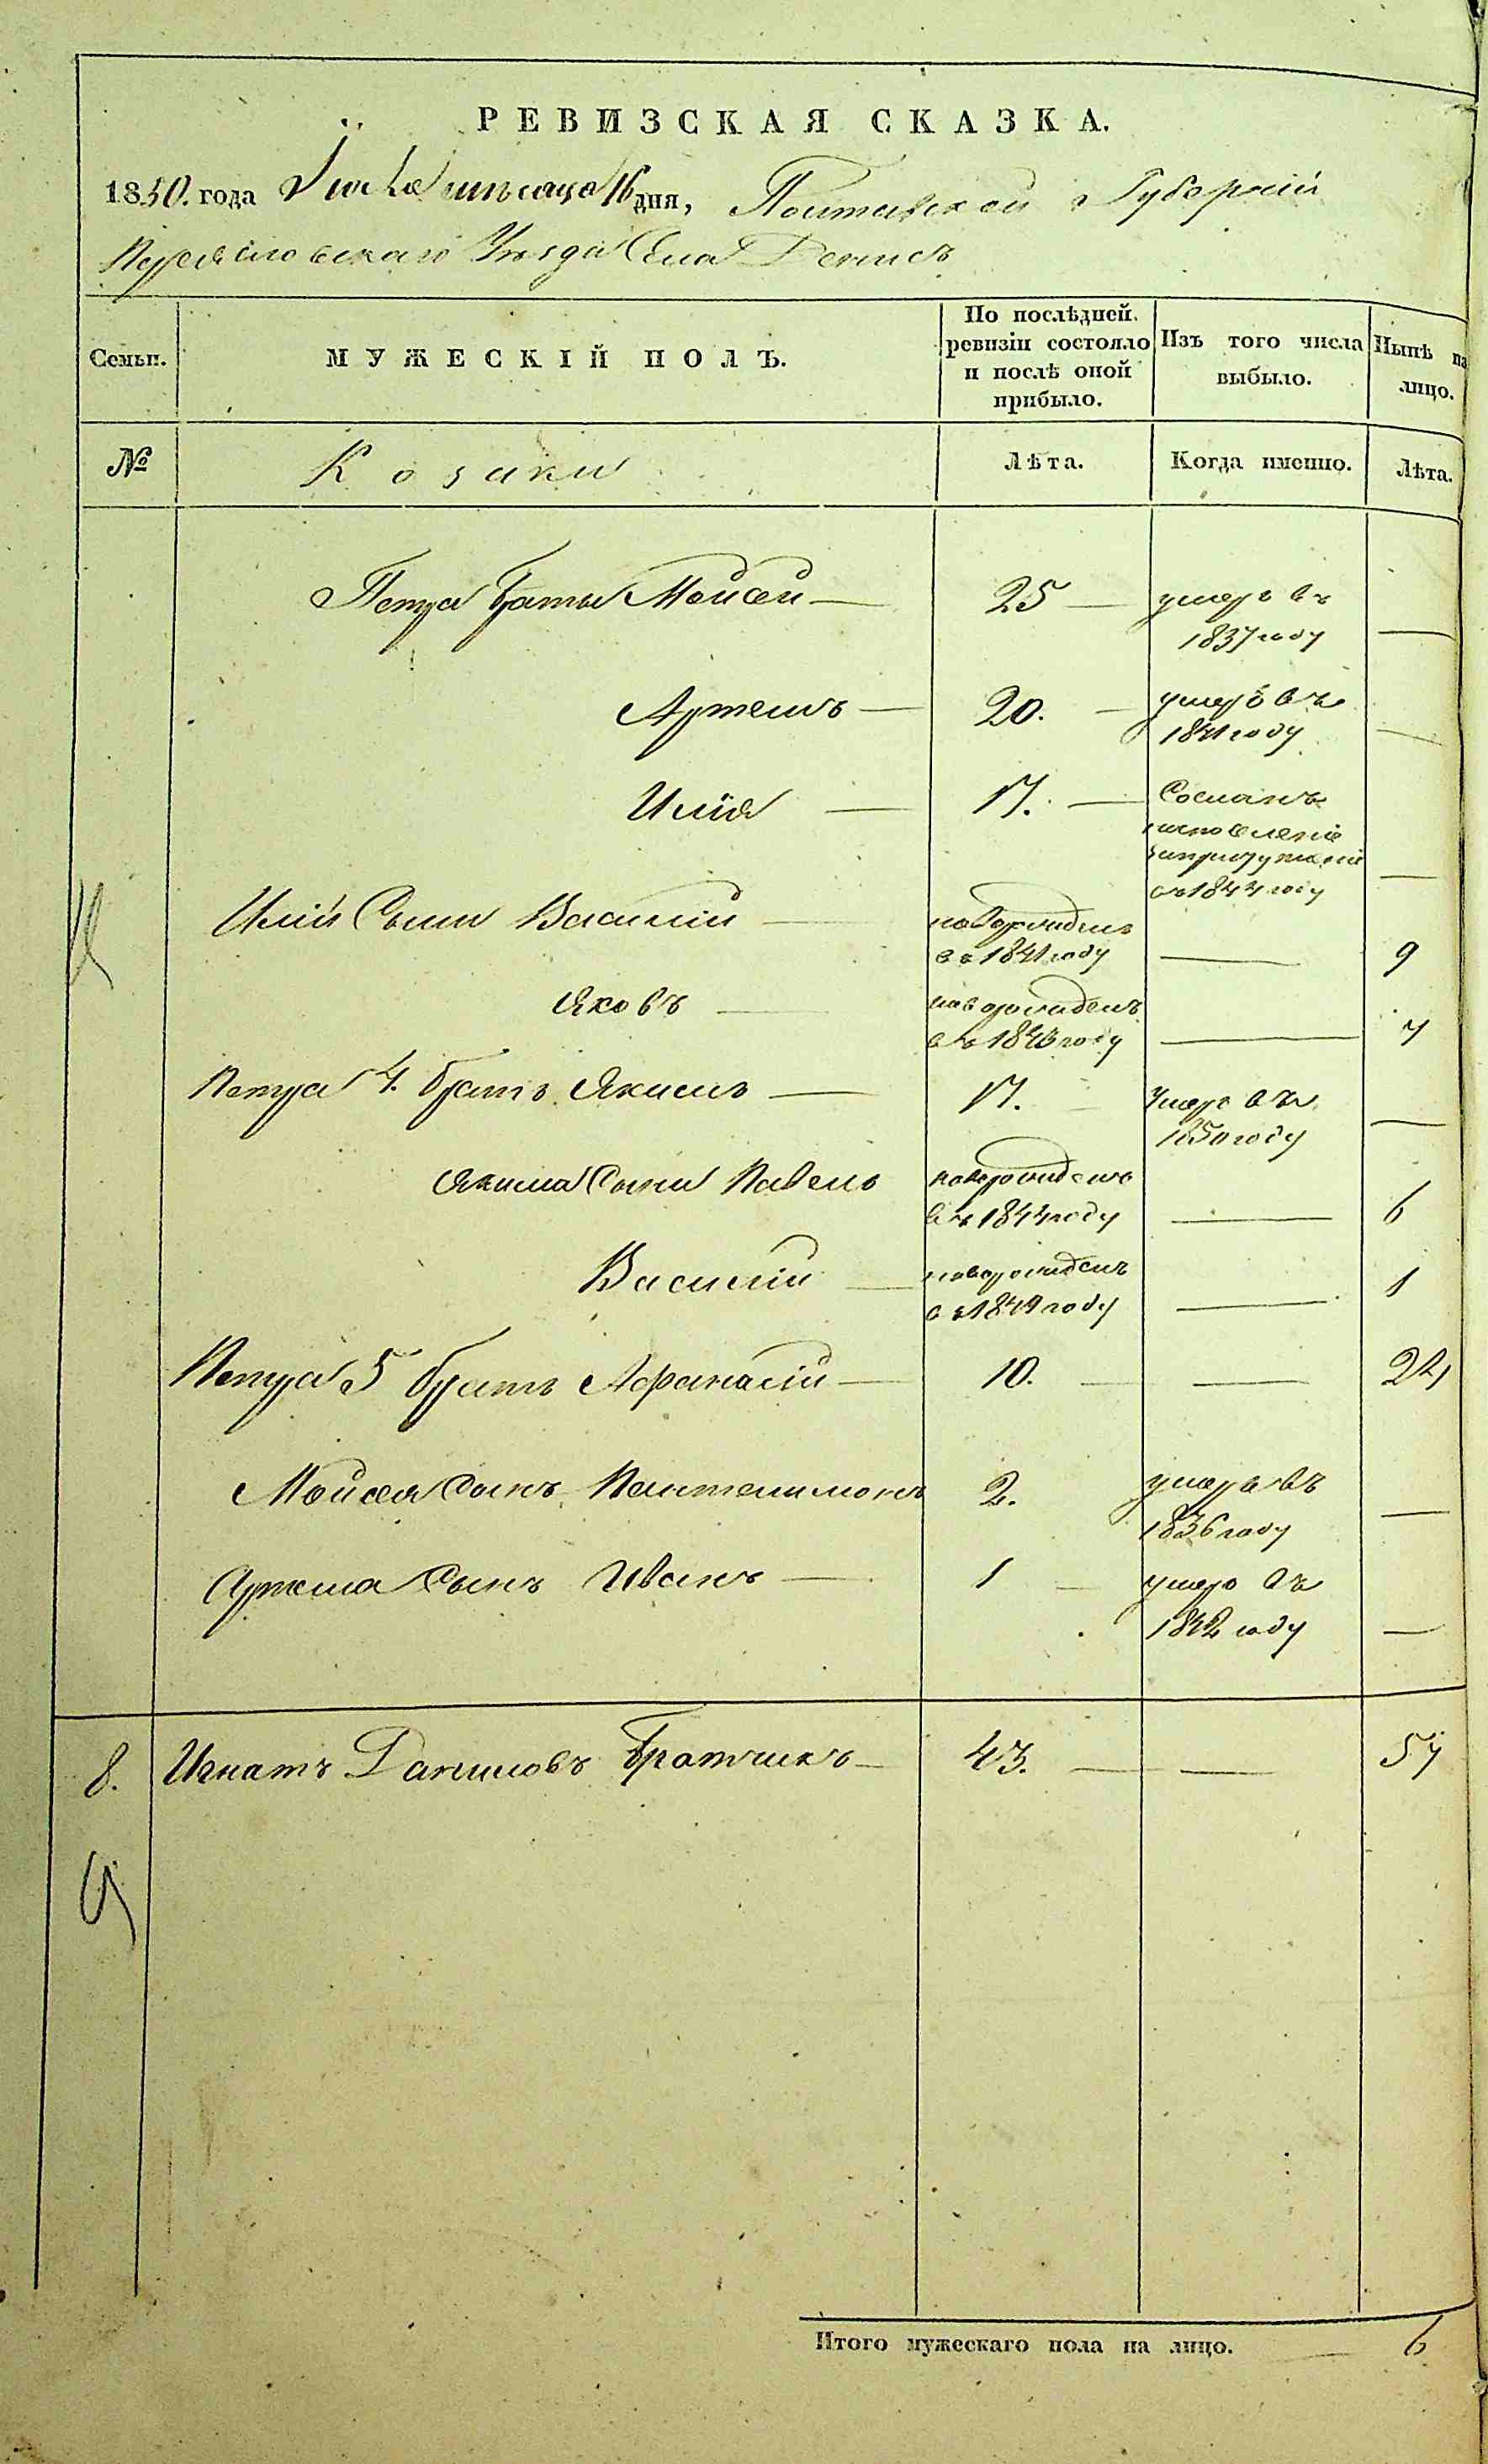 РЕВИЗСКАЯ СКАЗКА.
1850. года Іюля мѣсяца 16 дня, Полтавской Губерніи
Переяславскаго Уѣзда Села Денисъ
Семьи.
МУЖЕСКІЙ ПОЛЪ.
По послѣдней ревизіи состояло и послѣ оной прибыло.
Изъ того числа выбыло.
Нынѣ на лицо.
№
Козаки
Лѣта.
Когда именно.
Лѣта.
Петра браты Моисей — 25 — умеръ въ
1837 году —
Артемъ — 20. — умеръ въ
1841 году —
Илія — 17. — Сосланъ
на поселеніе
въ 1844 году —
Иліи Сыни Василій — новорожденъ
въ 1841 году — 9
Яковъ — новорожденъ
въ 1843 году — 7
Петра 4. братъ Якимъ — 17. — умеръ въ
1850 году —
Якима Сыни Павелъ новорожденъ
въ 1844 году — 6
Василій — новорожденъ
въ 1849 году — 1
Петра 5 братъ Афанасій — 10. — — 24
Моисея Сынъ Пантелимонъ 2. умеръ въ
1836 году —
Артема Сынъ Иванъ — 1 — умеръ въ
1842 году —
8. Игнатъ Даниловъ Братчикъ — 43. — — 57
Итого мужескаго пола на лицо. — 6